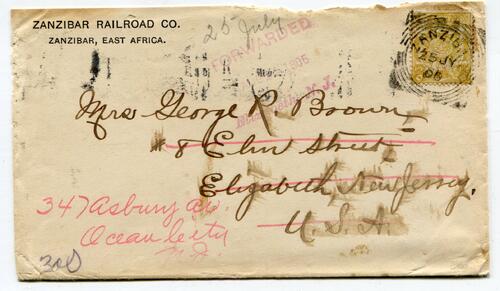 ZANZIBAR RAILROAD CO.
ZANZIBAR, EAST AFRICA.
25 July
FORWARDED
ZANZIBAR
25 JY
06
N.J.
Mrs George R. Brown,
# 8 Elm Street
Elizabeth, New Jersey.
U.S.A.
347 Asbury av.
Ocean City
N.J.
300